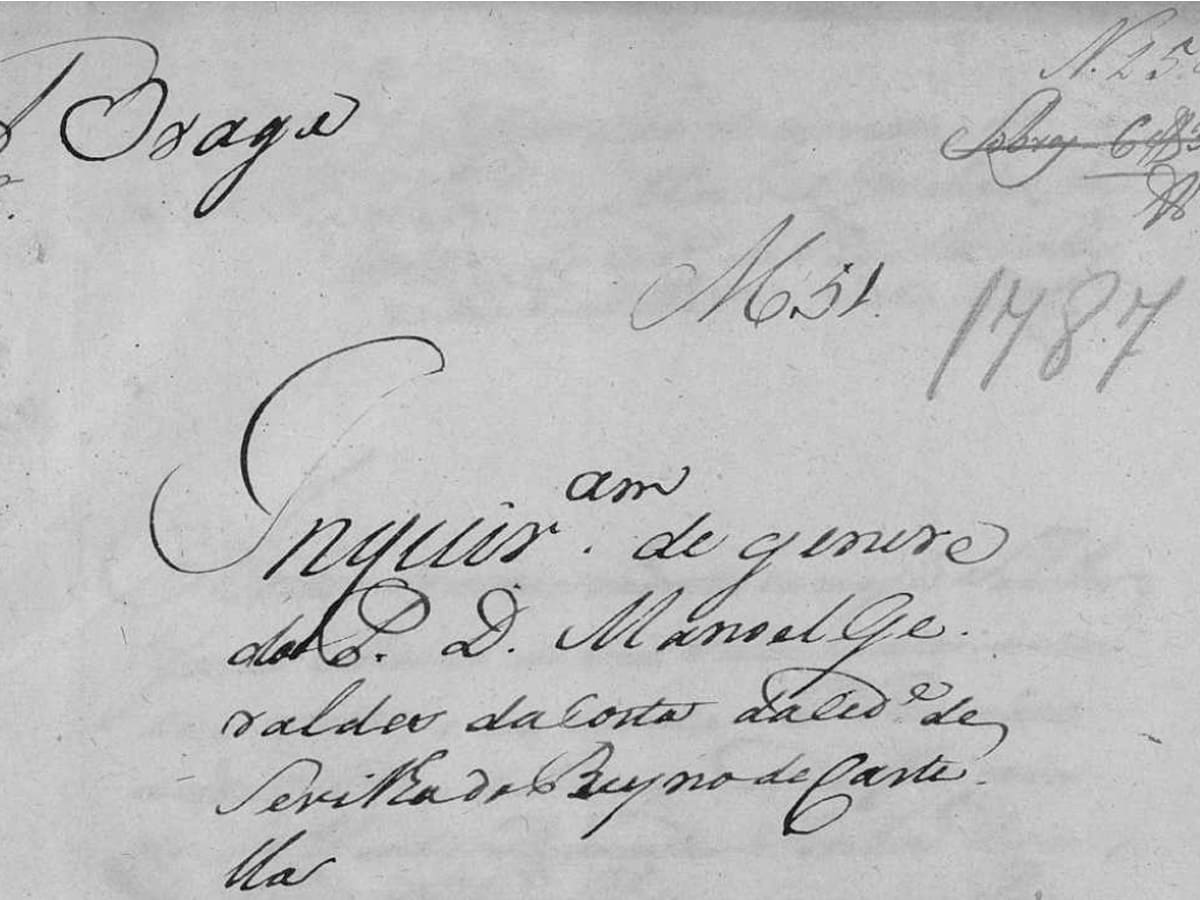 Braga
N. 25
M 51.
1787
Inquir.am de genere
do P. D. Manoel Ge.
raldes da Costa da Cid.e de
Sevilha do Reyno de Caste-
lla